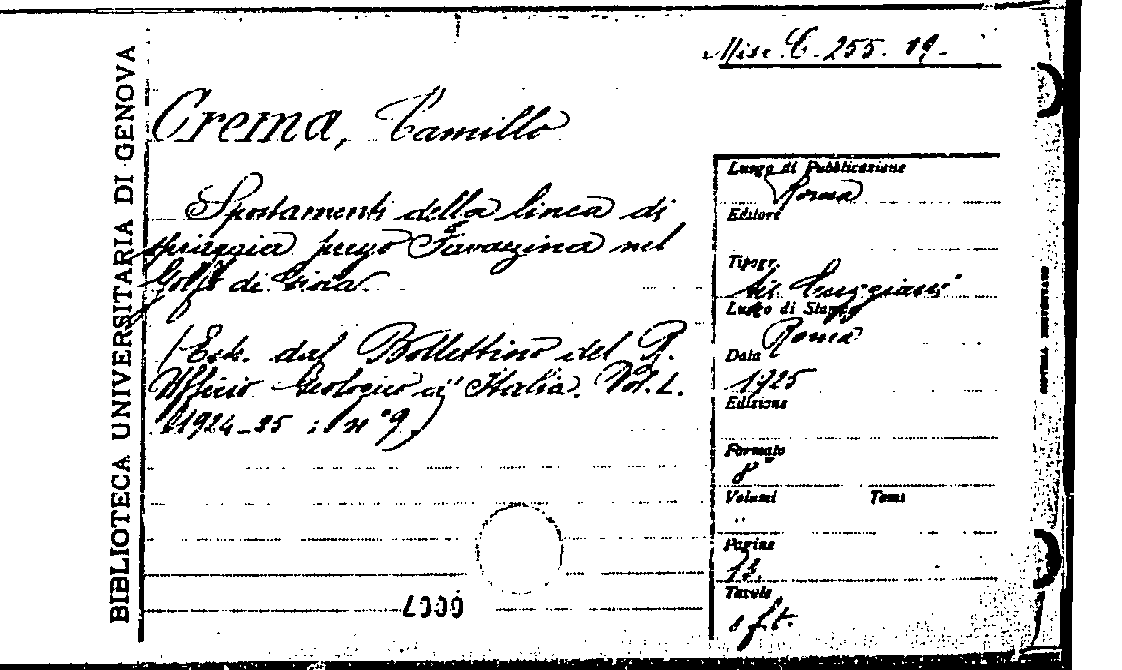 BIBLIOTECA UNIVERSITARIA DI GENOVA
Misc. C. 255. 19.
Crema, Camillo
Spostamenti della linea di
spiaggia presso Favazzina nel
Golfo di Gioia.
(Estr. dal Bollettino del R.
Ufficio Geologico d'Italia. Vol. L.
1924-25 : n° 9)
Luogo di Pubblicazione
Roma
Editore
Tipogr.
Luogo di Stampa
Roma
Data
1925
Edizione
Formato
8°
Volumi Tomi
Pagine
Tavole
f. t.